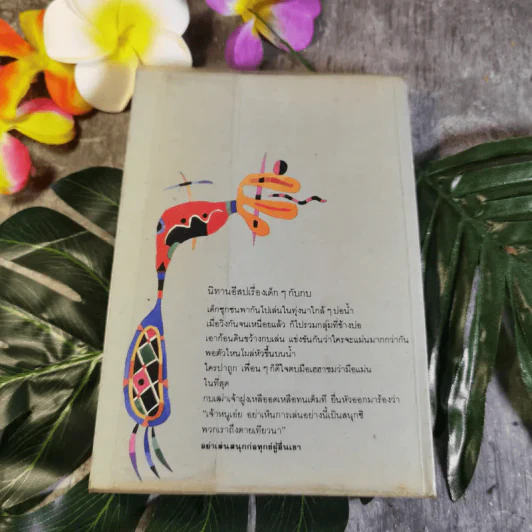 นิทานอีสปเรื่องเด็ก ๆ กับกบ
เด็กซุกซนพากันไปเล่นในทุ่งนาใกล้ ๆ บ่อน้ำ
เมื่อวิ่งกันจนเหนื่อยแล้ว ก็ไปรวมกลุ่มที่ข้างบ่อ
เอาก้อนดินขว้างกบเล่น แข่งขันกันว่าใครจะแม่นมากกว่ากัน
พอตัวไหนโผล่หัวขึ้นบนน้ำ
ใครปาถูก เพื่อน ๆ ก็ดีใจตบมือเฮฮาชมว่ามือแม่น
ในที่สุด
กบเฒ่าเจ้าฝูงเหลืออดเหลือทนเต็มที ยื่นหัวออกมาร้องว่า
"เจ้าหนูเอ๋ย อย่าเห็นการเล่นอย่างนี้เป็นสนุกซิ
พวกเราถึงตายเทียวนา"
อย่าเล่นสนุกก่อทุกข์ผู้อื่นเขา